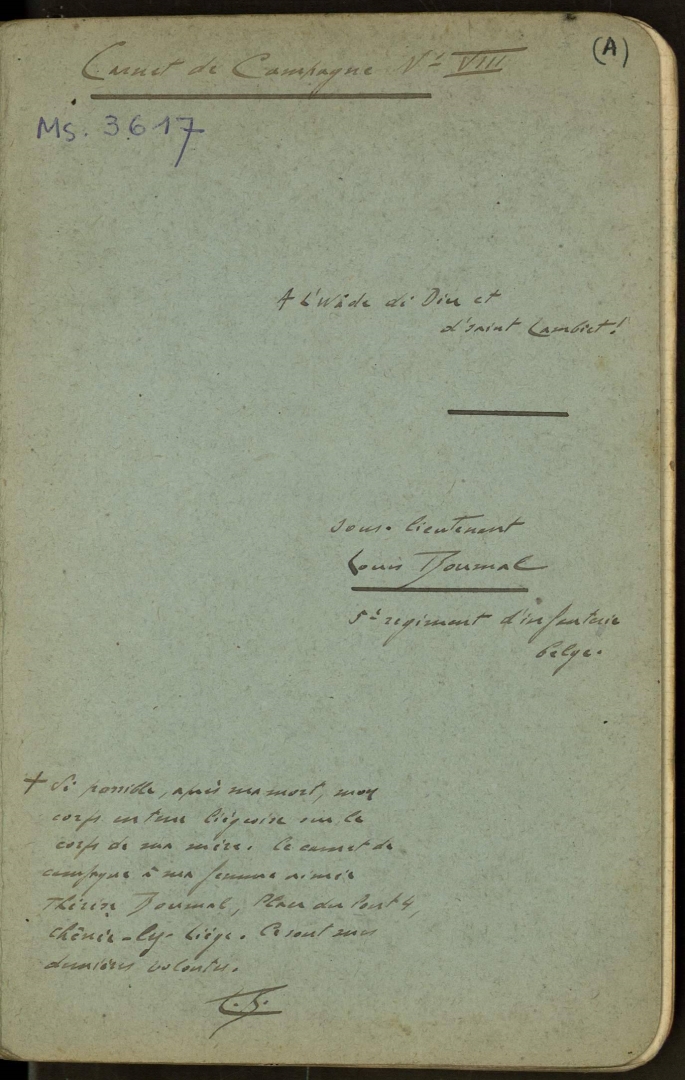 (A)
Carnet de Campagne N° VIII
Ms. 3617
A l'wåde di Diu et
d'saint Lambiet!
sous-lieutenant
Louis Boumal
5e regiment d'infanterie
belge.
+ Si possible, après ma mort, mon
corps en terre liégeoise sur le
corps de ma mère. Le carnet de
campagne à ma femme aimée
Thérèse Boumal, Place du Pont 4,
Chênée-lez-Liége. Ce sont mes
dernières volontés.
L.B.